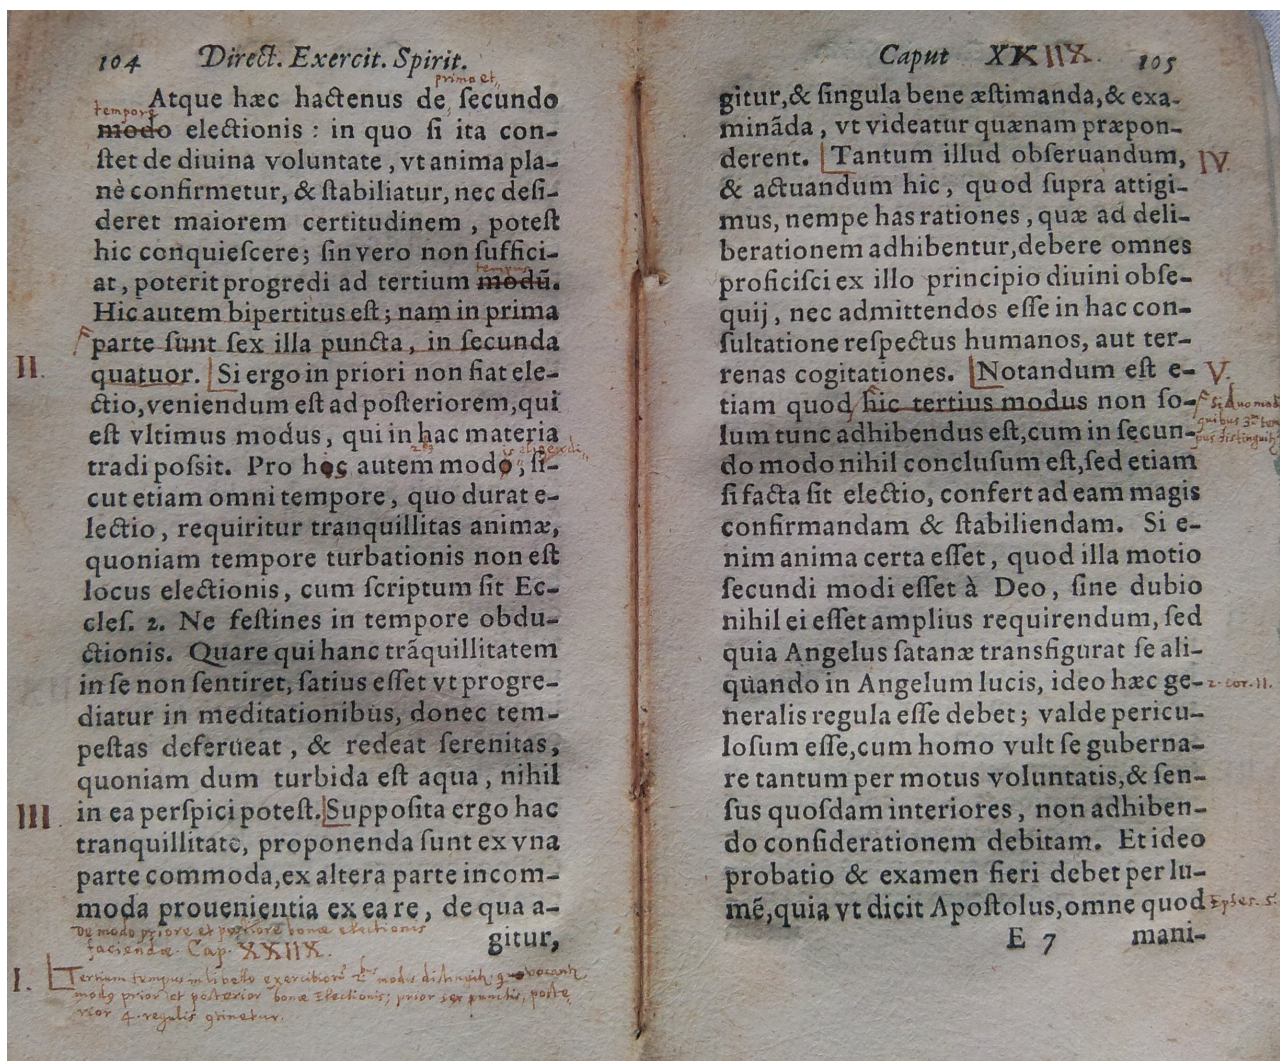 104 Direct. Exercit. Spirit.
prima et
Atque hæc hactenus de secundo
tempore
modo electionis : in quo si ita con-
stet de diuina voluntate , vt anima pla-
nè confirmetur, & stabiliatur, nec desi-
deret maiorem certitudinem , potest
hic conquiescere; sin vero non suffici-
tempus
at , poterit progredi ad tertium modũ.
Hic autem bipertitus est ; nam in prima
parte sunt sex illa puncta , in secunda
II.
quatuor. Si ergo in priori non fiat ele-
ctio, veniendum est ad posteriorem, qui
est vltimus modus , qui in hac materia
tradi possit. Pro hoc autem modo, si-
cut etiam omni tempore , quo durat e-
lectio , requiritur tranquillitas animæ,
quoniam tempore turbationis non est
locus electionis , cum scriptum sit Ec-
cles. 2. Ne festines in tempore obdu-
ctionis. Quare qui hanc trãquillitatem
in se non sentiret, satius esset vt progre-
diatur in meditationibus, donec tem-
pestas deferueat , & redeat serenitas,
quoniam dum turbida est aqua , nihil
III.
in ea perspici potest. Supposita ergo hac
tranquillitate, proponenda sunt ex vna
parte commoda, ex altera parte incom-
moda prouenientia ex ea re , de qua a-
gitur,
De modo priore et posteriore bonæ electionis
faciendæ. Cap. XXIIX.
I. Tertium tempus in libello exercitiorũ modos distinguit
modus prior et posterior bonæ Electionis; prior sex punctis, poste
rior 4. regulis
Caput XXIIX. 105
gitur, & singula bene æstimanda, & exa-
minãda , vt videatur quænam præpon-
derent. Tantum illud obseruandum,
IV.
& actuandum hic , quod supra attigi-
mus, nempe has rationes , quæ ad deli-
berationem adhibentur, debere omnes
proficisci ex illo principio diuini obse-
quij , nec admittendos esse in hac con-
sultatione respectus humanos, aut ter-
renas cogitationes. Notandum est e-
V.
tiam quod hic tertius modus non so-
quibus 3m tem
pus distinguit
lum tunc adhibendus est, cum in secun-
do modo nihil conclusum est, sed etiam
si facta sit electio, confert ad eam magis
confirmandam & stabiliendam. Si e-
nim anima certa esset , quod illa motio
secundi modi esset à Deo , sine dubio
nihil ei esset amplius requirendum, sed
quia Angelus satanæ transfigurat se ali-
quando in Angelum lucis, ideo hæc ge-
2. Cor. 11.
neralis regula esse debet ; valde pericu-
losum esse, cum homo vult se guberna-
re tantum per motus voluntatis, & sen-
sus quosdam interiores , non adhiben-
do considerationem debitam. Et ideo
probatio & examen fieri debet per lu-
mẽ, quia vt dicit Apostolus, omne quod
Ephes. 5.
E 7 mani-